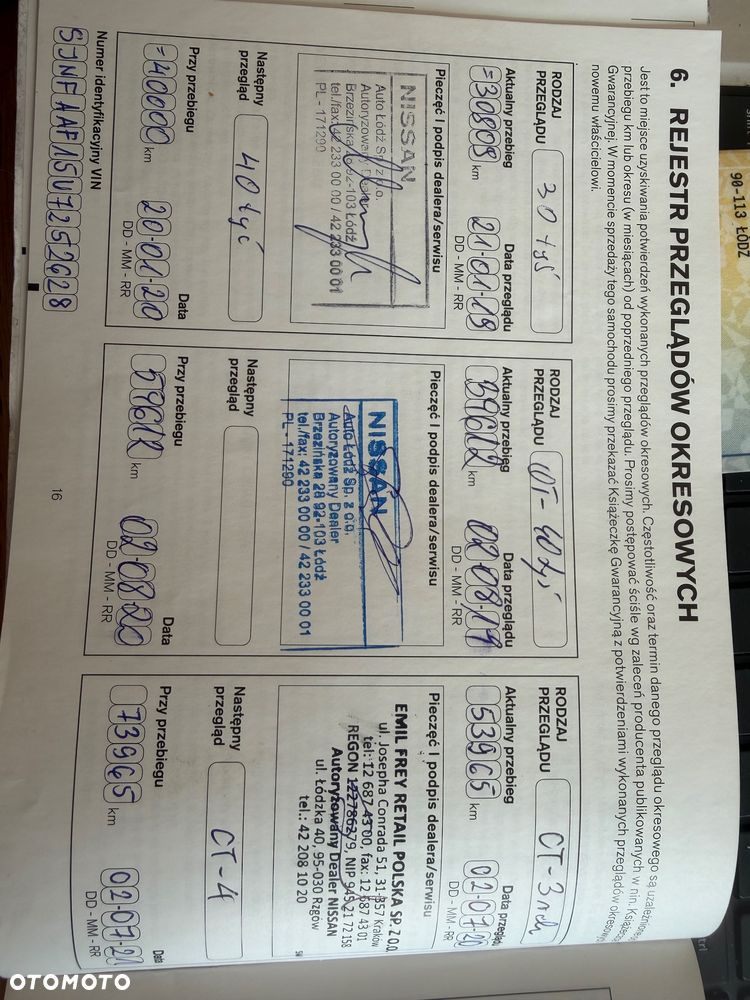 6. REJESTR PRZEGLĄDÓW OKRESOWYCH
Jest to miejsce uzyskiwania potwierdzeń wykonanych przeglądów okresowych. Częstotliwość oraz termin danego przeglądu okresowego są uzależnione
przebiegu km lub okresu (w miesiącach) od poprzedniego przeglądu. Prosimy postępować ściśle wg zaleceń producenta publikowanych w nin. Książeczce
Gwarancyjnej. W momencie sprzedaży tego samochodu prosimy przekazać Książeczkę Gwarancyjną z potwierdzeniami wykonanych przeglądów okresowych
nowemu właścicielowi.
RODZAJ PRZEGLĄDU 30 tyś
Aktualny przebieg Data przeglądu
=30809 km 21-01-19
DD - MM - RR
Pieczęć i podpis dealera/serwisu
NISSAN
Auto Łódź Sp. z o.o.
Autoryzowany Dealer
Brzezińska 28 92-103 Łódź
tel./fax: 42 233 00 00 / 42 233 00 01
PL - 171290
Następny przegląd 40 tyć
Przy przebiegu Data
=40000 km 20-01-20
DD - MM - RR
Numer identyfikacyjny VIN
SJNFAAF15U7252628
RODZAJ PRZEGLĄDU OT-40 tyś
Aktualny przebieg Data przeglądu
39612 km 02-08-19
DD - MM - RR
Pieczęć i podpis dealera/serwisu
NISSAN
Auto Łódź Sp. z o.o.
Autoryzowany Dealer
Brzezińska 28 92-103 Łódź
tel./fax: 42 233 00 00 / 42 233 00 01
PL - 171290
Następny przegląd
Przy przebiegu Data
59612 km 02-08-20
DD - MM - RR
RODZAJ PRZEGLĄDU CT-3
Aktualny przebieg Data przeglądu
53965 km 02-07-20
DD - MM - RR
Pieczęć i podpis dealera/serwisu
EMIL FREY RETAIL POLSKA SP. Z O.O.
ul. Josepha Conrada 51, 31-357 Kraków
tel: 12 687 43 00, fax: 12 687 43 01
REGON 122786279, NIP 945 21 72 158
Autoryzowany Dealer NISSAN
ul. Łódzka 40, 95-030 Rzgów
tel.: 42 208 10 20
Następny przegląd CT-4
Przy przebiegu Data
73965 km 02-07-21
DD - MM - RR
16
90-113 ŁÓDŹ
OTOMOTO